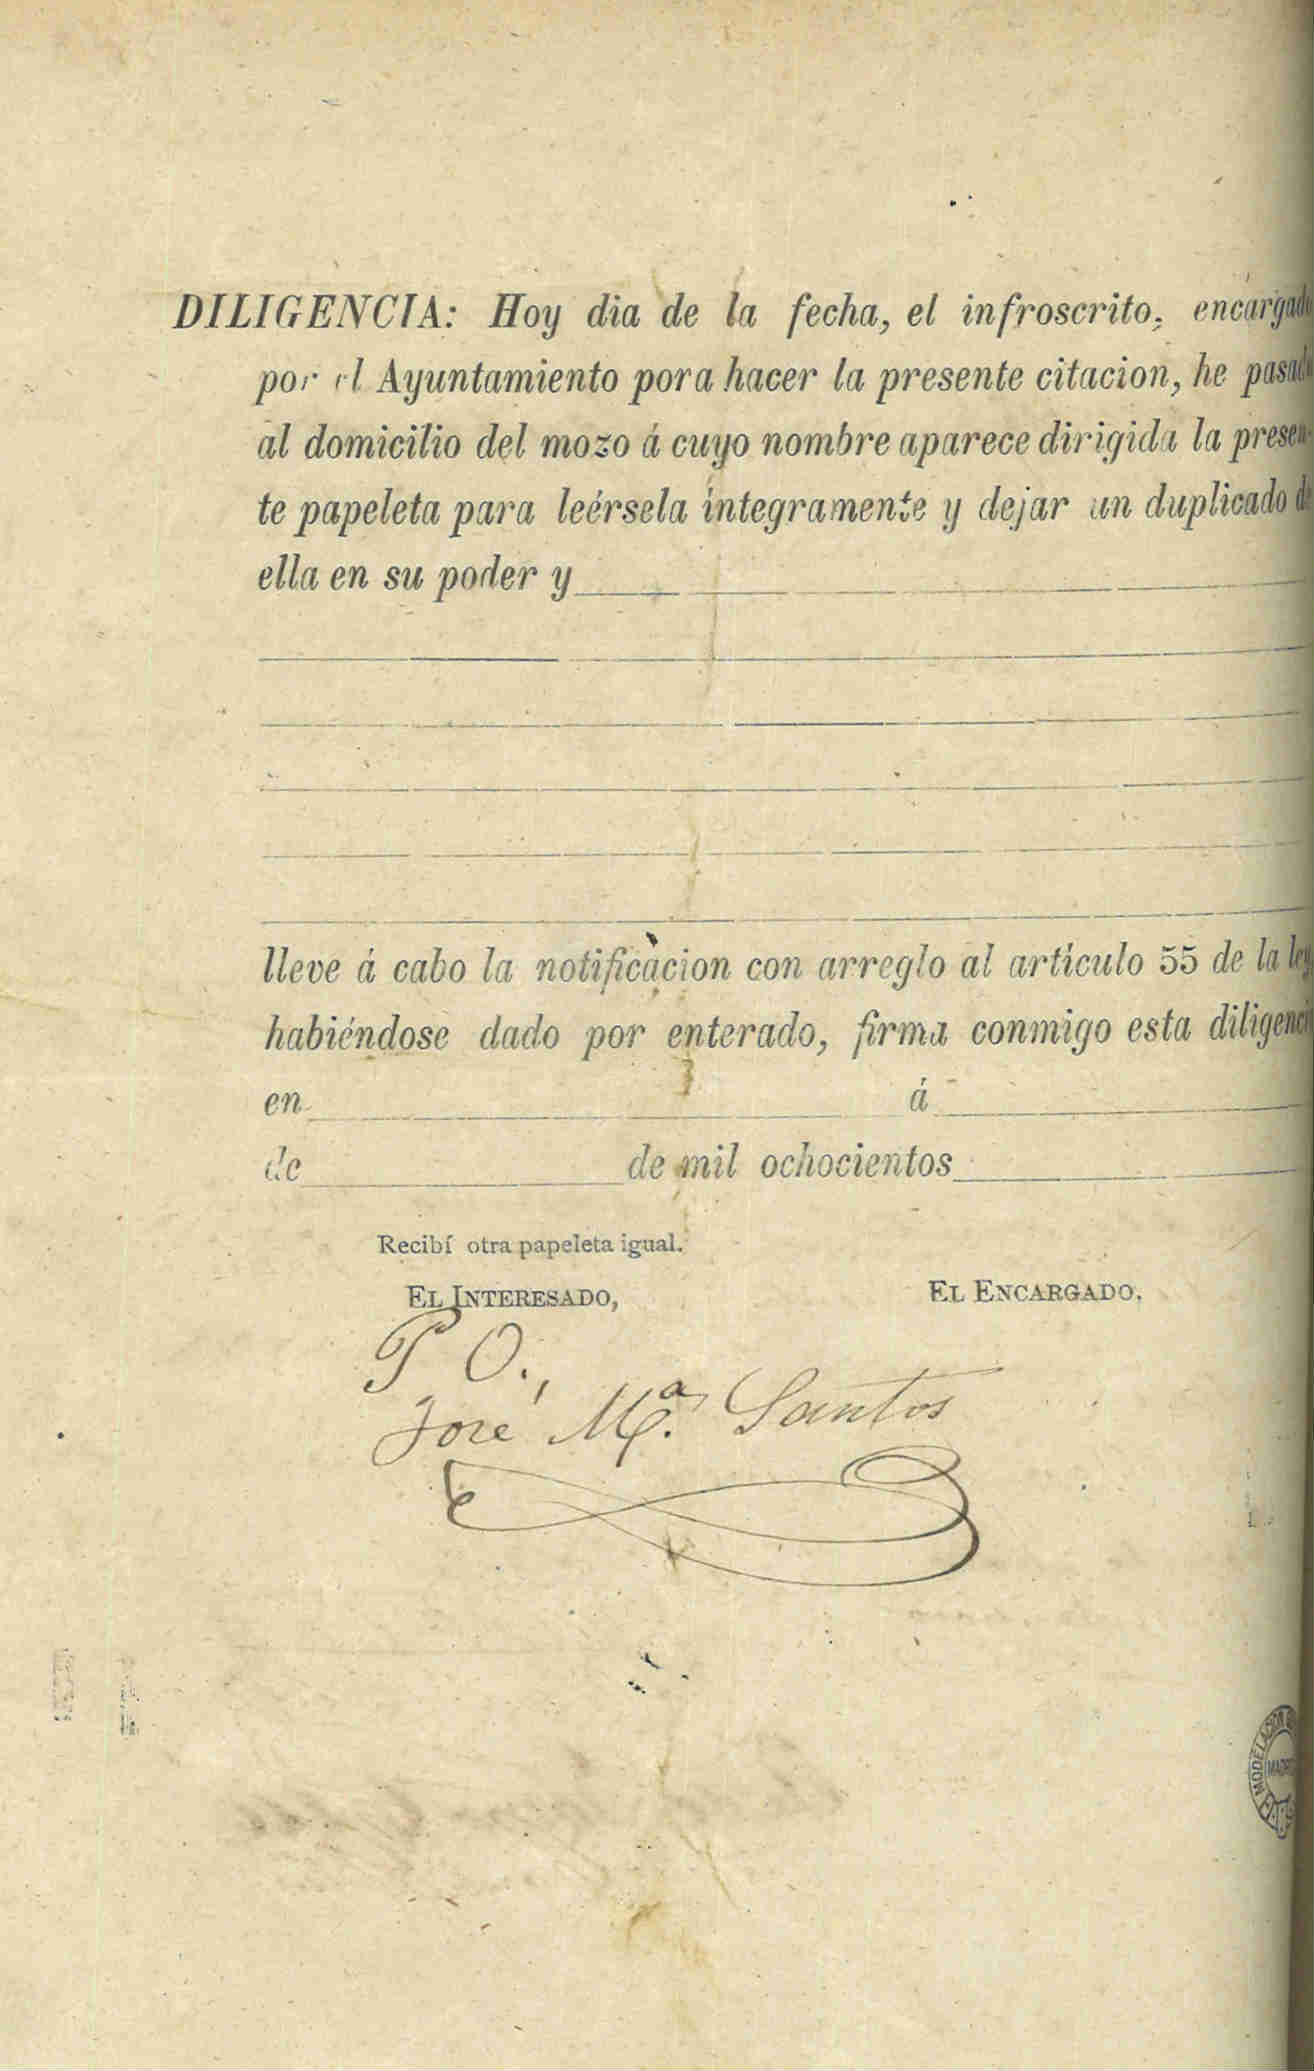 DILIGENCIA: Hoy dia de la fecha, el infroscrito, encargado
por el Ayuntamiento pora hacer la presente citacion, he pasado
al domicilio del mozo á cuyo nombre aparece dirigida la presen-
te papeleta para leérsela íntegramente y dejar un duplicado de
ella en su poder y
lleve á cabo la notificacion con arreglo al artículo 55 de la ley
habiéndose dado por enterado, firma conmigo esta diligencia
en á
de de mil ochocientos
Recibí otra papeleta igual.
EL INTERESADO, EL ENCARGADO.
P O.,
José Mª. Santos
MODELACION